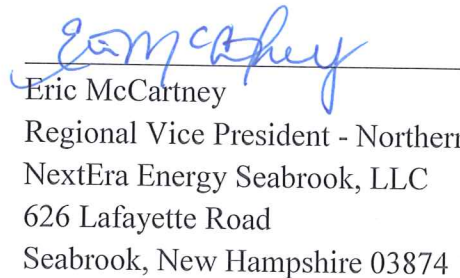 Eric McCartney
Eric McCartney
Regional Vice President - Northern
NextEra Energy Seabrook, LLC
626 Lafayette Road
Seabrook, New Hampshire 03874